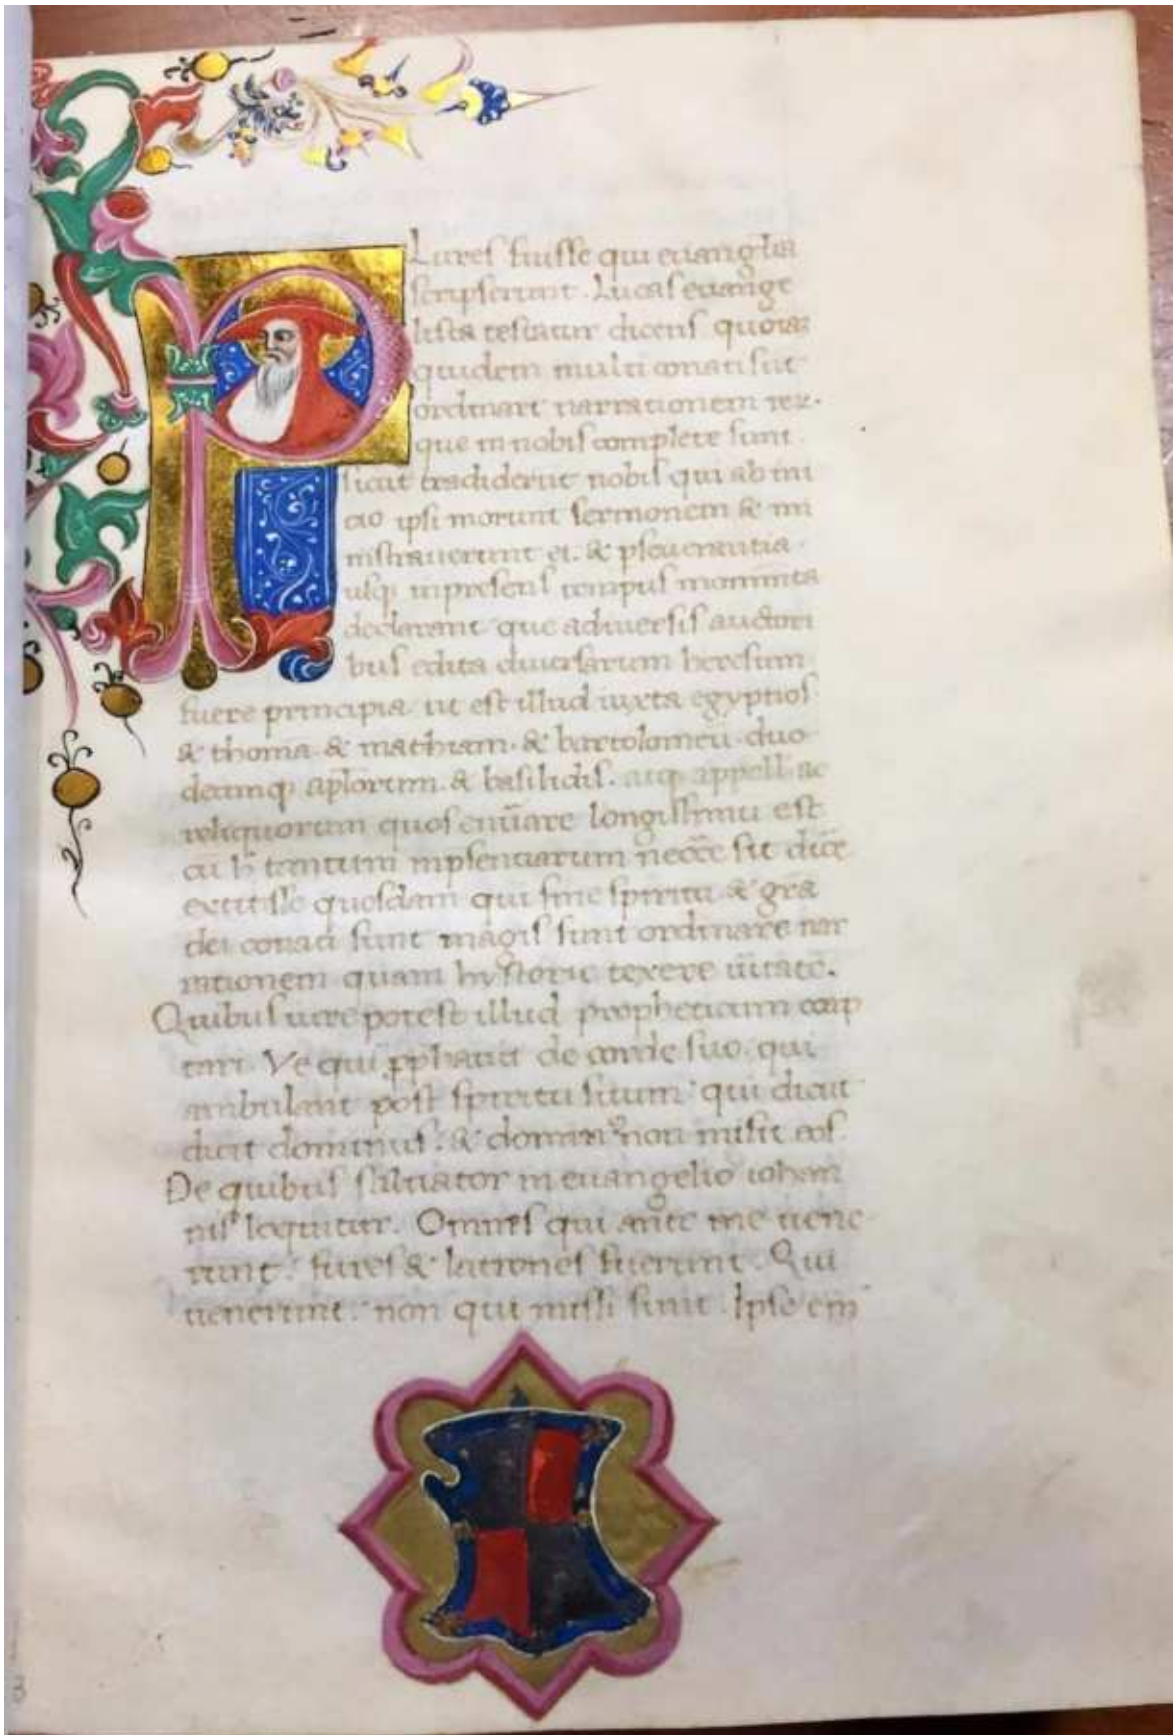 PLures fuisse qui euangelia
scripserunt. Lucas euange
lista testatur dicens quoniam
quidem multi conati sūt
ordinare narrationem rerū.
que in nobis complete sunt.
sicut tradiderūt nobis qui ab ini
cio ipsi uiderunt sermonem & mi
nistrauerunt ei. & pseuerantia
usq; in presens tempus monimta
declarant que a diuersis auctori
bus edita diuersarum heresum
fuere principia. ut est illud iuxta egyptios
& thoma. & mathiam. & bartolomeū. duo
decimq; aplorum. & basilidis. atq; appellis ac
reliquorum quos enūare longissimū est
cū h tantum inpsentiarum necce sit dice
extitisse quosdam qui sine spiritu & gra
dei conati sunt magis sunt ordinare nar
rationem quam hystorie texere uitate.
Quibus iure potest illud propheticum coap
tari. Ve qui pphatat de corde suo. qui
ambulant post spiritū suum. qui dicūt
dicit dominus. & domin⁹ non misit eos.
De quibus saluator in euangelio iohan
nis loquitur. Omnes qui ante me uene
runt. fures & latrones fuerunt. Qui
uenerunt. non qui missi sunt. Ipse em